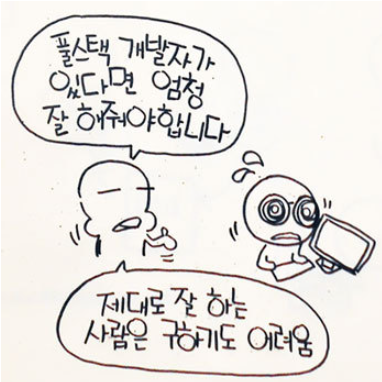 풀스택 개발자가
있다면 엄청
잘 해줘야합니다
제대로 잘 하는
사람은 구하기도 어려움